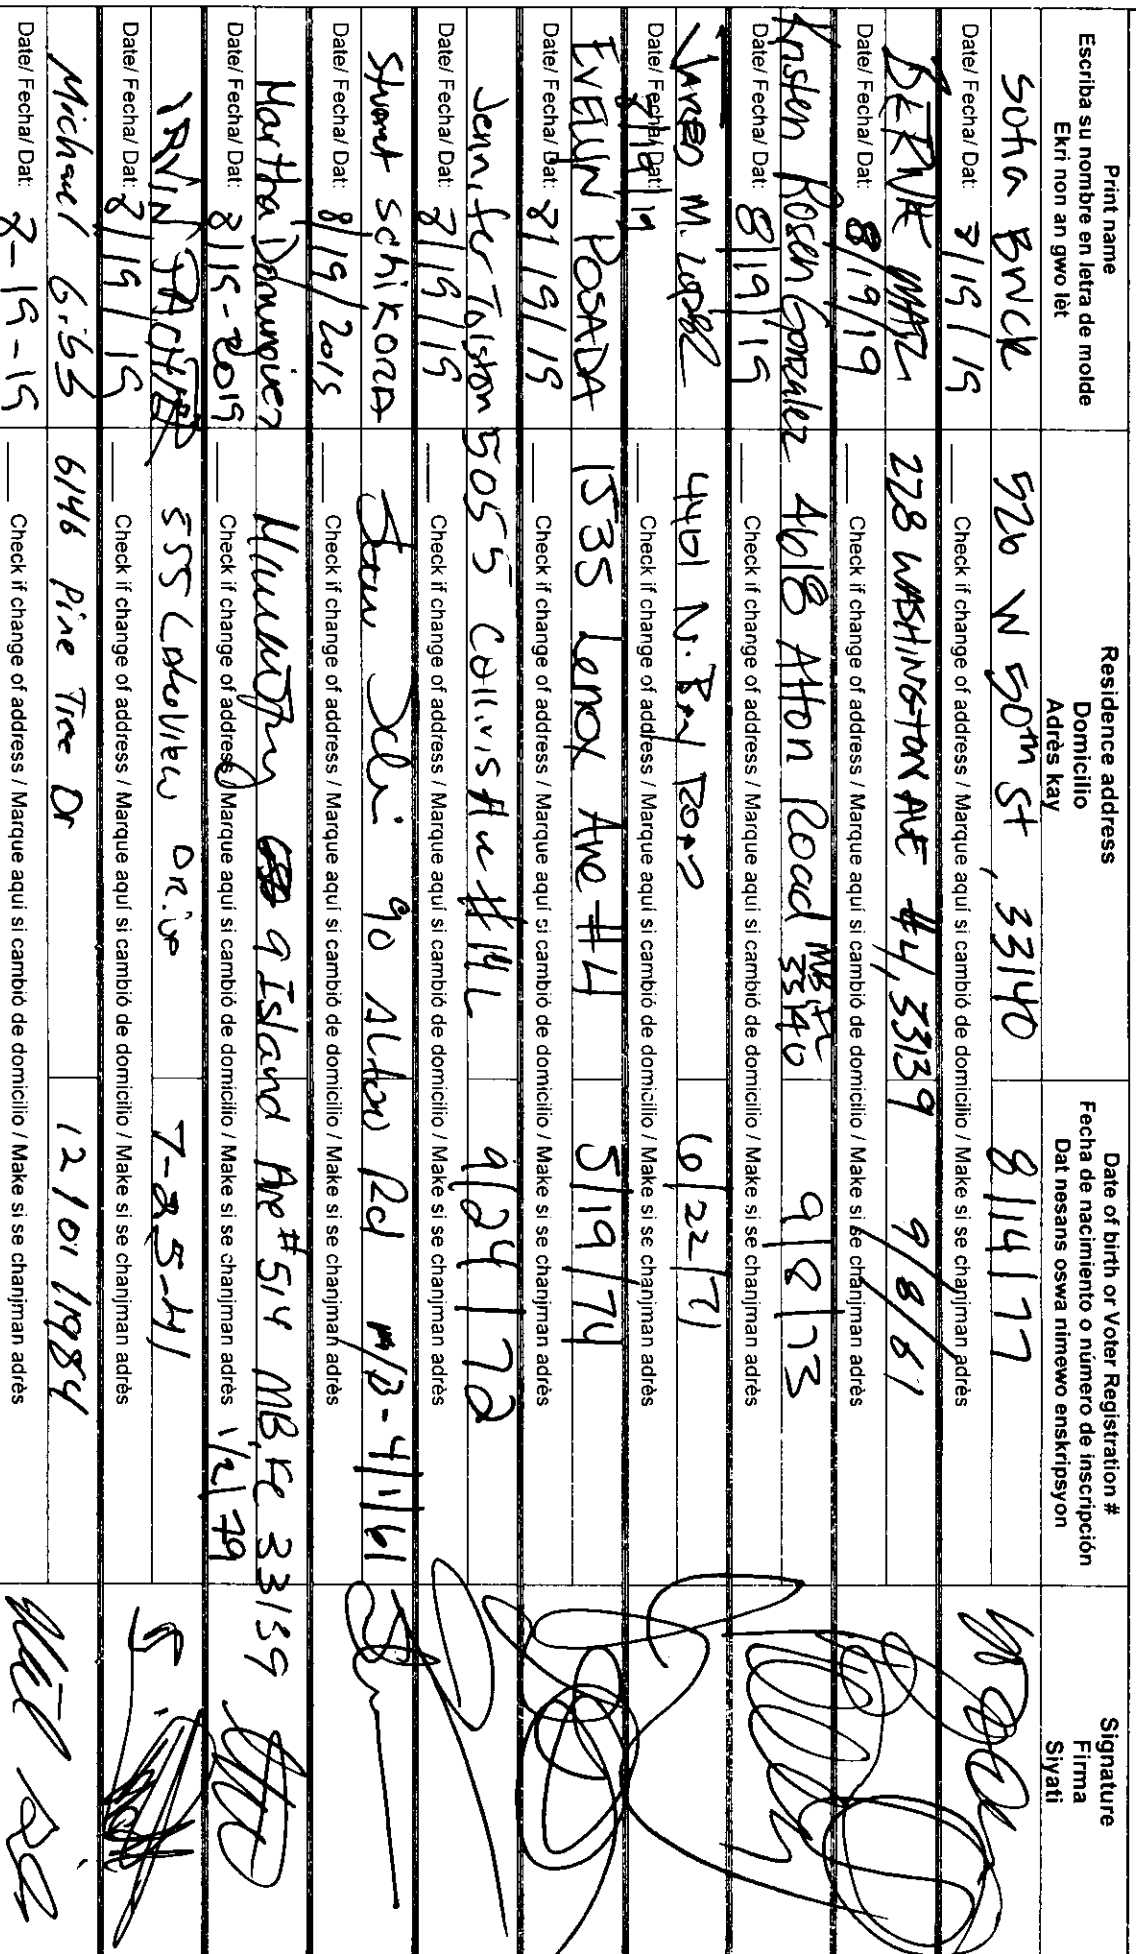 Print name
Escriba su nombre en letra de molde
Ekri non an gwo lèt
Residence address
Domicilio
Adrès kay
Date of birth or Voter Registration #
Fecha de nacimiento o número de inscripción
Dat nesans oswa nimewo enskripsyon
Signature
Firma
Siyati
Sofia Brick 526 W 50th St, 33140 8/14/77
Date/ Fecha/ Dat: 8/19/19 ___ Check if change of address / Marque aquí si cambió de domicilio / Make si se chanjman adrès
228 WASHINGTON AVE #4, 33139 9/8/61
Date/ Fecha/ Dat: 8/19/19 ___ Check if change of address / Marque aquí si cambió de domicilio / Make si se chanjman adrès
Kristen Rosen Gonzalez 4618 Alton Road MB FL 33140 9/8/73
Date/ Fecha/ Dat: 8/19/19 ___ Check if change of address / Marque aquí si cambió de domicilio / Make si se chanjman adrès
JARED M. 4401 N. Bay Road 6/22/71
Date/ Fecha/ Dat: 8/19/19 ___ Check if change of address / Marque aquí si cambió de domicilio / Make si se chanjman adrès
EVELIN POSADA 1535 Lenox Ave #4 5/19/74
Date/ Fecha/ Dat: 8/19/19 ___ Check if change of address / Marque aquí si cambió de domicilio / Make si se chanjman adrès
Jennifer Tolston 5055 Collins Ave #14L 9/24/72
Date/ Fecha/ Dat: 8/19/19 ___ Check if change of address / Marque aquí si cambió de domicilio / Make si se chanjman adrès
Stuart Schikora 90 Alton Rd M/B - 4/1/61
Date/ Fecha/ Dat: 8/19/2019 ___ Check if change of address / Marque aquí si cambió de domicilio / Make si se chanjman adrès
Martha Dominguez 9 Island Ave #514 MB, FL 33139
Date/ Fecha/ Dat: 8/19-2019 ___ Check if change of address / Marque aquí si cambió de domicilio / Make si se chanjman adrès 1/2/79
IRVIN 555 Lakeview Drive 7-25-41
Date/ Fecha/ Dat: 8/19/19 ___ Check if change of address / Marque aquí si cambió de domicilio / Make si se chanjman adrès
Michael Gibbs 6146 Pine Tree Dr 12/01/1984
Date/ Fecha/ Dat: 8-19-19 ___ Check if change of address / Marque aquí si cambió de domicilio / Make si se chanjman adrès